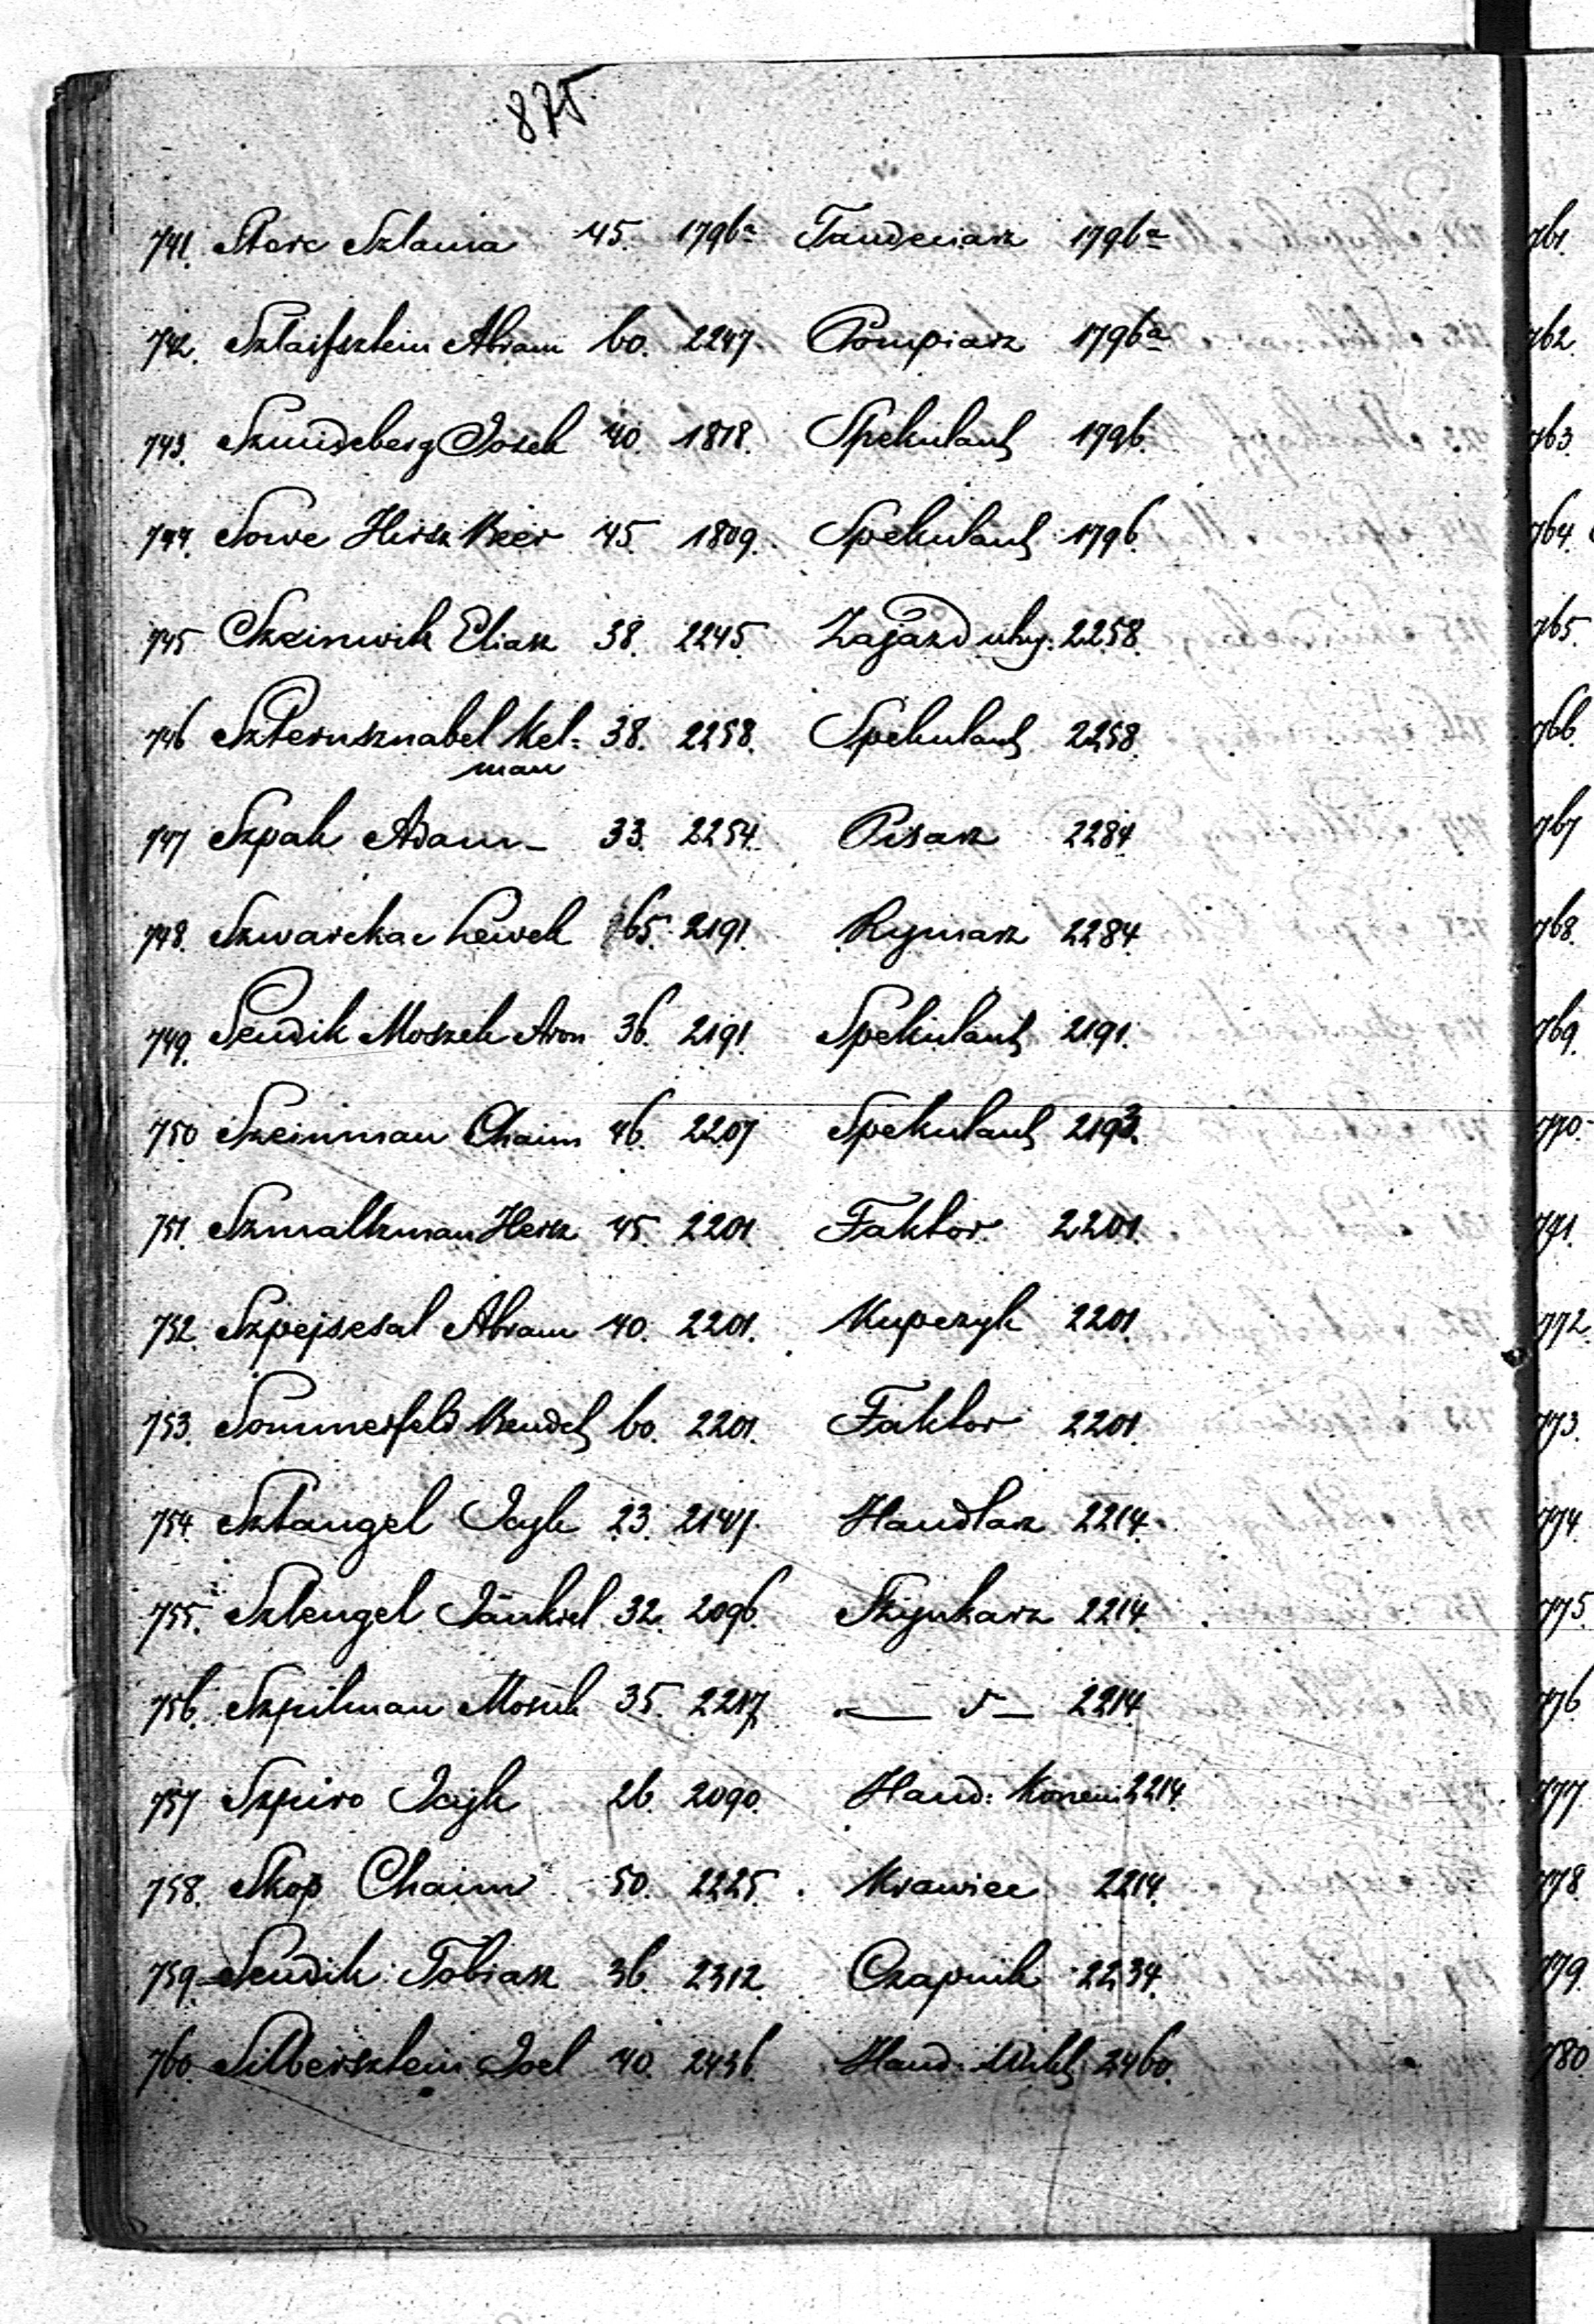 875
741. Sterc Szlama 45. 1796a Tandeciarz 1796a
742. Szlaifsztein Abram 60. 2247. Pompiarz 1796a
743. Szmideberg Josek 40. 1818. Spekulant 1796.
744. Sowe Hersz Beer 45. 1809. Spekulant 1796.
745 Szeinwik Eliasz 38. 2245. Zajazd utrzy. 2258.
746 Szternsznabel Kel= 38. 2258. Spekulant 2258.
man
747 Szpak Adam 33. 2254. Pisarz 2284
748. Szwarckac Lewek 65. 2191. Rymarz 2284
749. Sendik Moszek Aron 36. 2191. Spekulant 2191.
750 Szeinman Chaim 46. 2207 Spekulant 2193.
751. Szmaltzman Hersz 45. 2201. Faktor 2201.
752. Szpejsesal Abram 40. 2201. Kupczyk 2201.
753. Sommerfeld Bendet 60. 2201. Faktor 2201.
754. Sztangel Icyk 23. 2147. Handlarz 2214.
755. Sztengel Jankiel 32. 2096. Szynkarz 2214.
756. Szpilman Mosiek 35. 2217. — 5 — 2214
757 Szpiro Icyk 26. 2090. Hand: Koniem. 2214.
758. Skop Chaim 50. 2225. Krawiec 2214.
759. Sendik Tobiasz 36. 2312. Czapnik 2234.
760. Silbersztein Joel 40. 2436. Hand. 2460.
761.
762.
763.
764.
765.
766.
767
768.
769.
770.
771.
772.
773.
774.
775.
776
777
778
779.
780